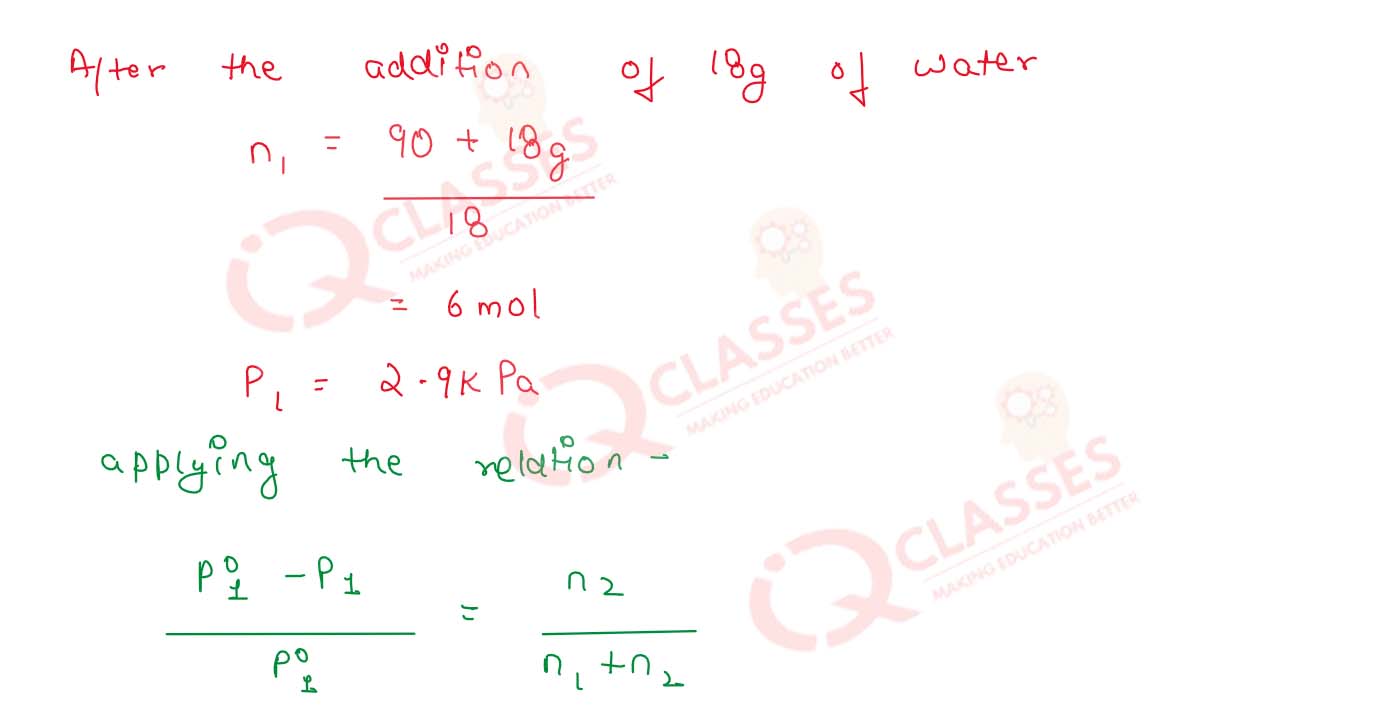 After the addition of 18g of water
n₁ = 90 + 18g
18
= 6 mol
P₁ = 2.9K Pa
applying the relation -
P⁰₁ - P₁ = n₂
P⁰₁ n₁ + n₂
iQ CLASSES
MAKING EDUCATION BETTER
iQ CLASSES
MAKING EDUCATION BETTER
iQ CLASSES
MAKING EDUCATION BETTER